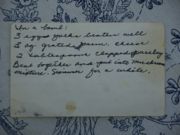 In a bowl:
3 eggs yolks beaten well
2 oz grated parm. cheese
2 tablespoons chopped parsley
Beat together and put into
mixture. Simmer for a while.